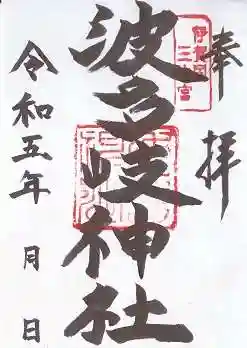 奉拝
伊賀国
三宮
波多岐神社
令和五年 月 日